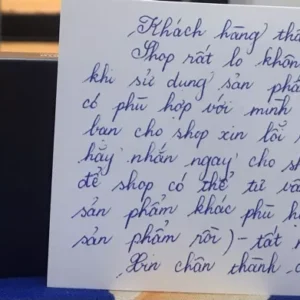 Khách hàng thâ
Shop rất lo khôn
khi sử dụng sản phẩ
có phù hợp với mình
bạn cho shop xin lỗi
hãy nhắn ngay cho sh
để shop có thể tư vấ
sản phẩm khác phù h
sản phẩm rồi) - tất
Xin chân thành